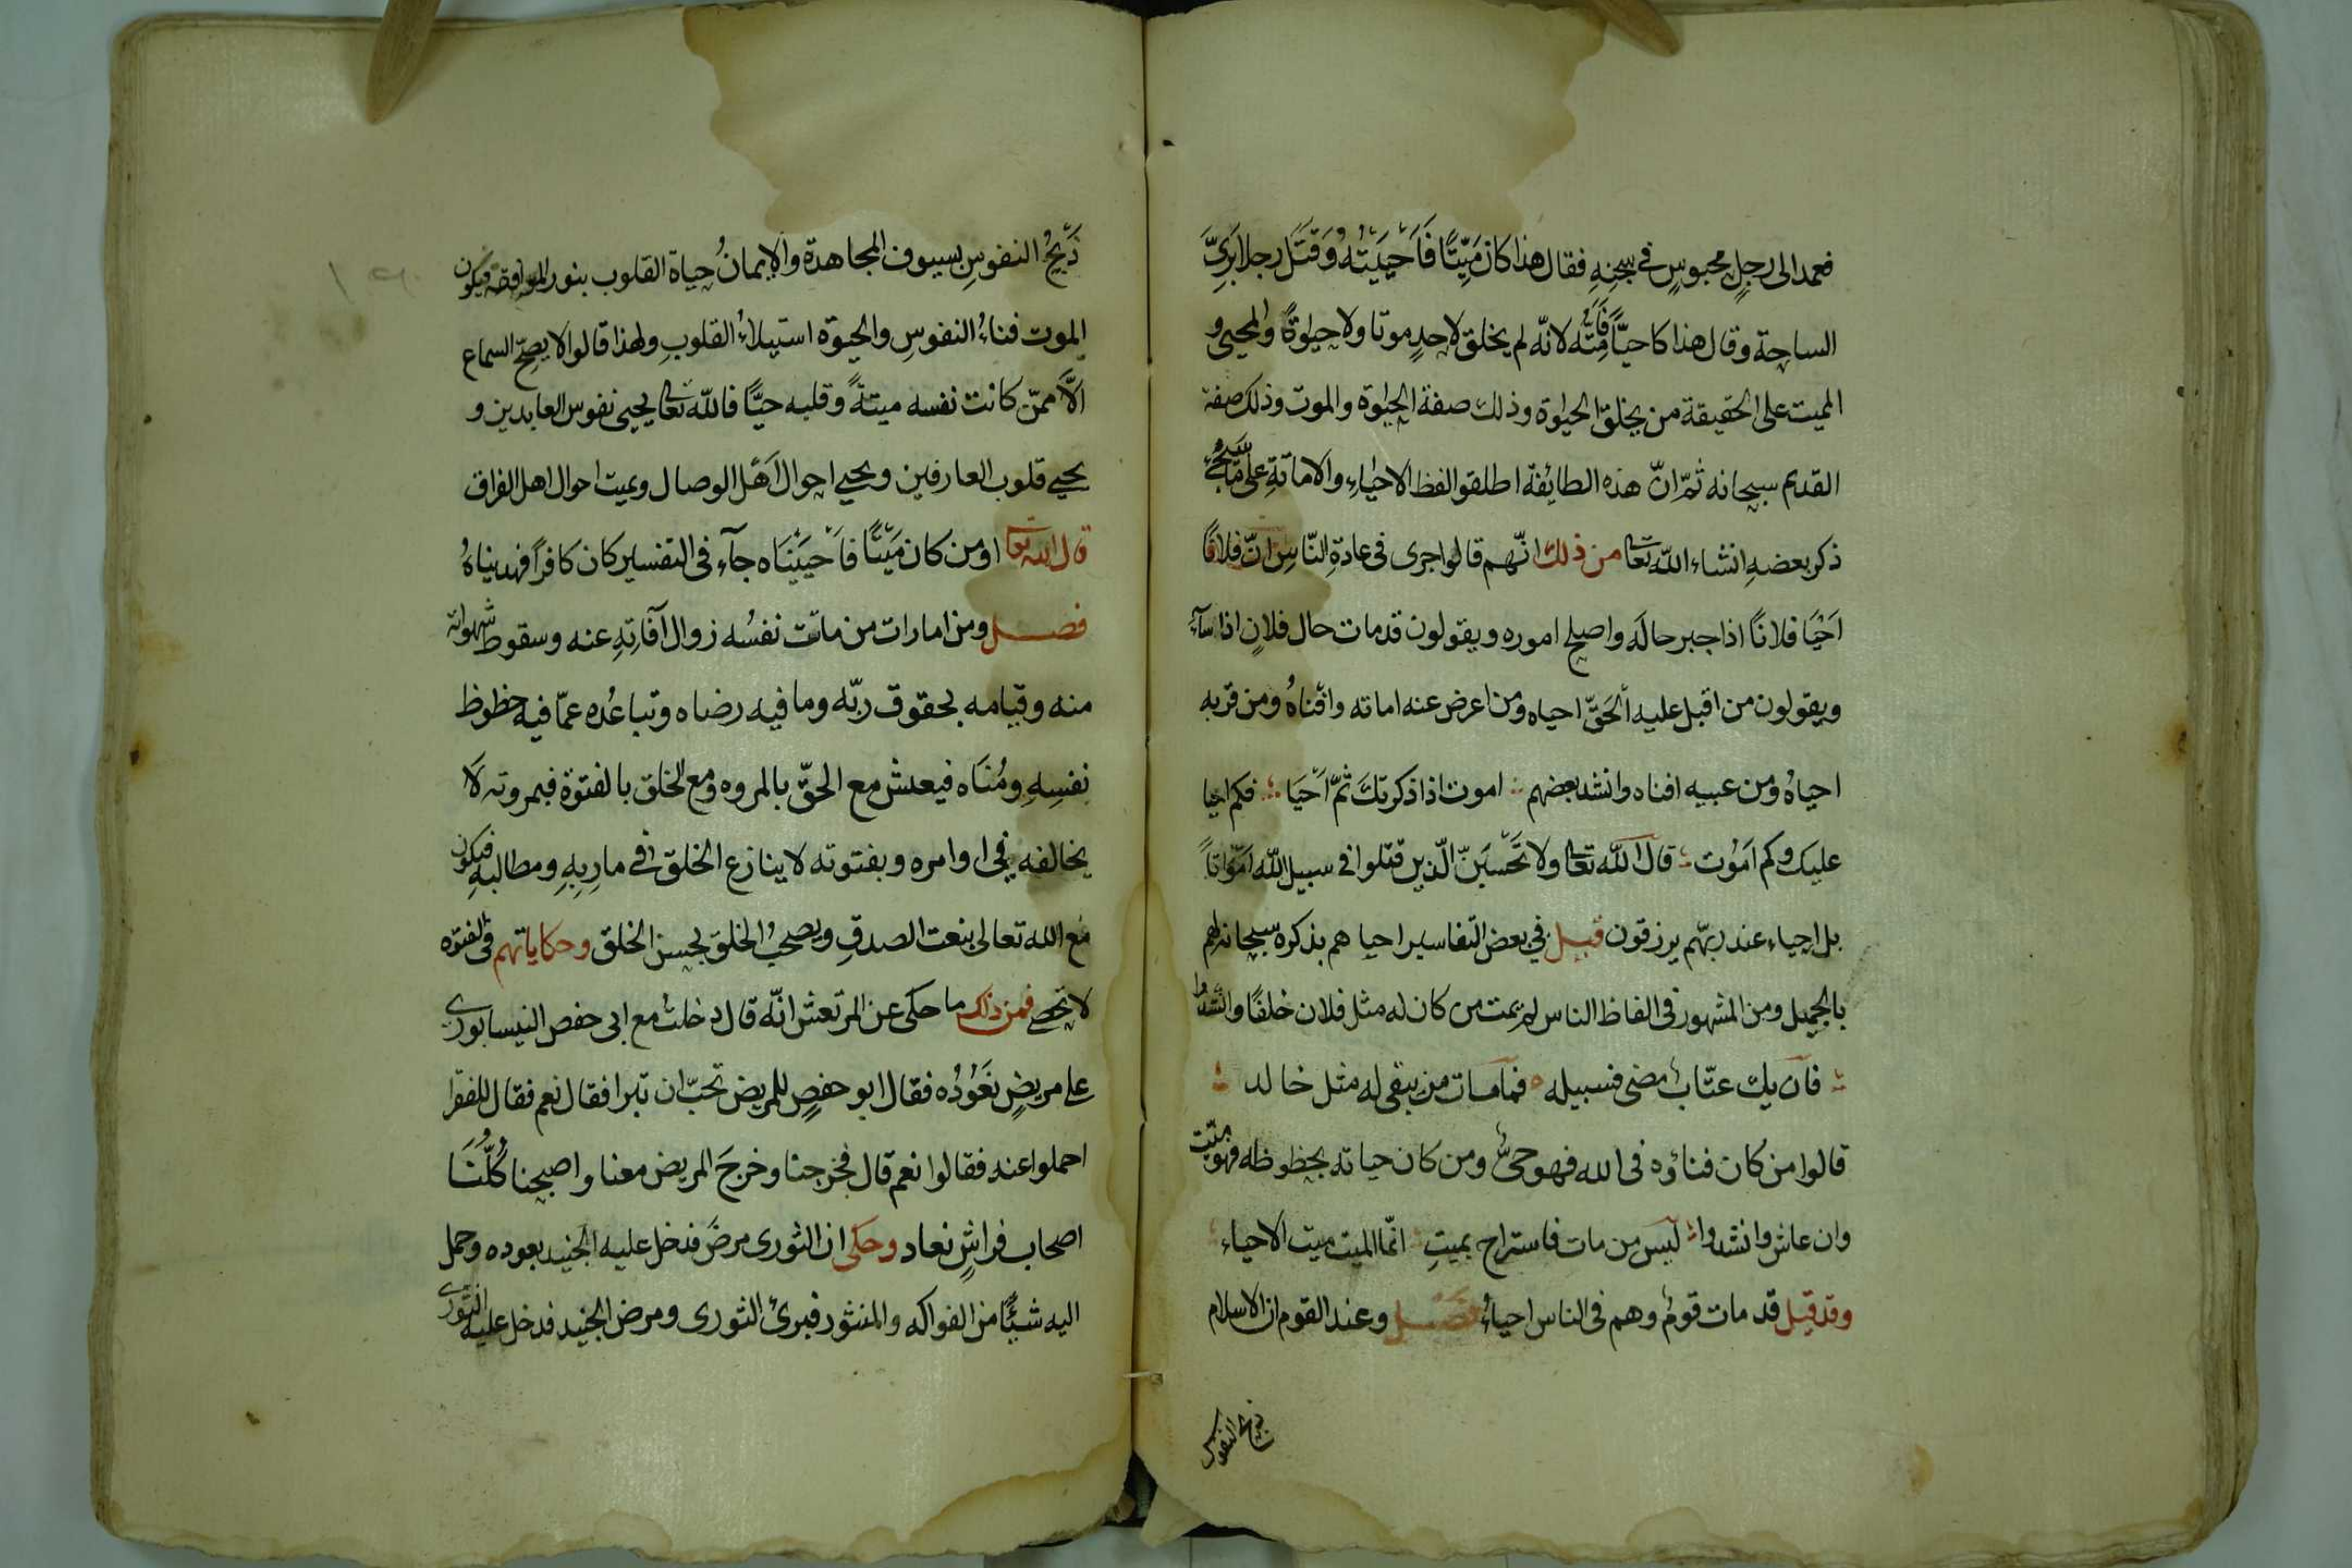 فعمد الى رجلٍ محبوسٍ في سجنهِ فقال هذا كان مَيِّتًا فَاَحْيَيْتُهُ وَقَتَل رجلا بَرِىَّ
الساحة وقال هذا كا حيًّا فَاَمَتُّه لانّه لم يخلق لاحدٍ موتا ولا حيوةً والمحيى و
المميت على الحقيقة من يخلق الحيوة وذلك صفة الحيوة والموت وذلك صفة
القديم سبحانه ثمّ انّ هذه الطائفة اطلقوا لفظ الاحياءِ والاماتةِ على ما سَيَجِئُ
ذكر بعضهِ انشاء اللّه تعا من ذلك انّهم قالوا جرى فى عادةِ النّاسِ انّ فلانًا
اَحْيَا فلانًا اذا جبر حالَه واصلح اموره ويقولون قد مات حال فلانٍ اذا سآء
ويقولون من اقبل عليه الحَقّ احياه ومن اعرض عنه اماته وافناهُ ومن قربه
احياهُ ومن غيبه افناه وانشد بعضهم اموت اذا ذكرتك ثمّ اَحْيَا فكم احيا
عليك وكم اَمُوت قال اللّه تعا ولا تَحْسَبَنّ الّذين قتلوا في سبيل اللّه اَمْوَاتًا
بل احياء عند ربّهم يرزقون قيل في بعض التفاسير احيا هم بذكره سبحانه لهم
بالجميل ومن المشهور فى الفاظ الناس لم يمت من كان له مثل فلان خلفًا وانشدوا
فان يك عتّاب مضى فسبيله فمامات من يبقى له مثل خالد
قالوا من كان فناؤه فى الله فهو حىٌّ ومن كان حياته بحظوظه فهو ميّت
وان عاش وانشدوا ليس من مات فاستراح بميتٍ انّما الميت ميت الاحياء
وقد قيل قد مات قومٌ وهم فى الناس احياءُ فصــل وعند القوم ان الاسلام
ذبح النفوس
ذَبْحُ النفوسِ بسيوف المجاهدة والايمانُ حياة القلوب بنور الموافقه فيكون
الموت فناءُ النفوسِ والحيوة استيلاءُ القلوبِ ولهذا قالوا لا يصحّ السماع
الَّا ممّن كانت نفسه ميتةً وقلبه حيًّا فاللّه تعا يحيى نفوس العابدين و
يحيى قلوب العارفين ويحيى احوال اَهْل الوصال ويميت احوال اهل الفراق
قال الله تعا اومن كان مَيْتًا فاَحْيَيْنَاه جآء فى التفسير كان كافرًا فهديناهُ
فصــل ومن امارات من ماتت نفسُه زوال آفَاتِهِ عنه وسقوط شهواته
منه وقيامه بحقوق ربّه وما فيه رضاه وتباعُده عمّا فيه حظوظ
نفسِهِ ومُنَاه فيعش مع الحقّ بالمروه ومع الخلق بالفتوة فبمروته لَا
يخالفه في اوامره وبفتوته لا ينازع الخلق في ماربِهِ ومطالبهِ فيكون
مع الله تعالى بنعت الصدقِ ويصحبُ الخلقَ بحسن الخلق وحكاياتهم فى الفتوه
لا تحصى فمن ذلك ما حكى عن المرتعش انّه قال دخلت مع ابى حفص النيسابورى
على مريضٍ نَعُوْدُه فقال ابو حفصٍ للمريض تحبّ ان تبرا فقال نعم فقال للفقرا
احملوا عنه فقالوا نعم قال فخرجنا وخرجَ المريض معنا واصبحنا كُلُّنَا
اصحاب فراشٍ نعاد وحكى ان الثورى مرضَ فدخل عليه الجنيد يعوده وحمل
اليه شيئًا من الفواكه والمنثور فبرئ الثورى ومرض الجنيد فدخل عليه الثورى